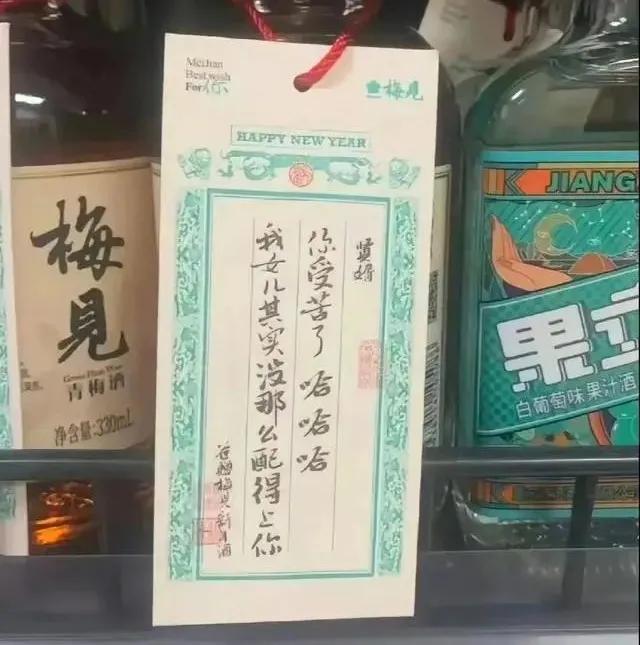 MeiJian
Best wish
For 你
梅見
HAPPY NEW YEAR
賢婿
你受苦了 哈哈哈
我女儿其实没那么配得上你
梅見
Green Plum Wine
青梅酒
净含量:330mL
JIANG
果立
白葡萄味果汁酒